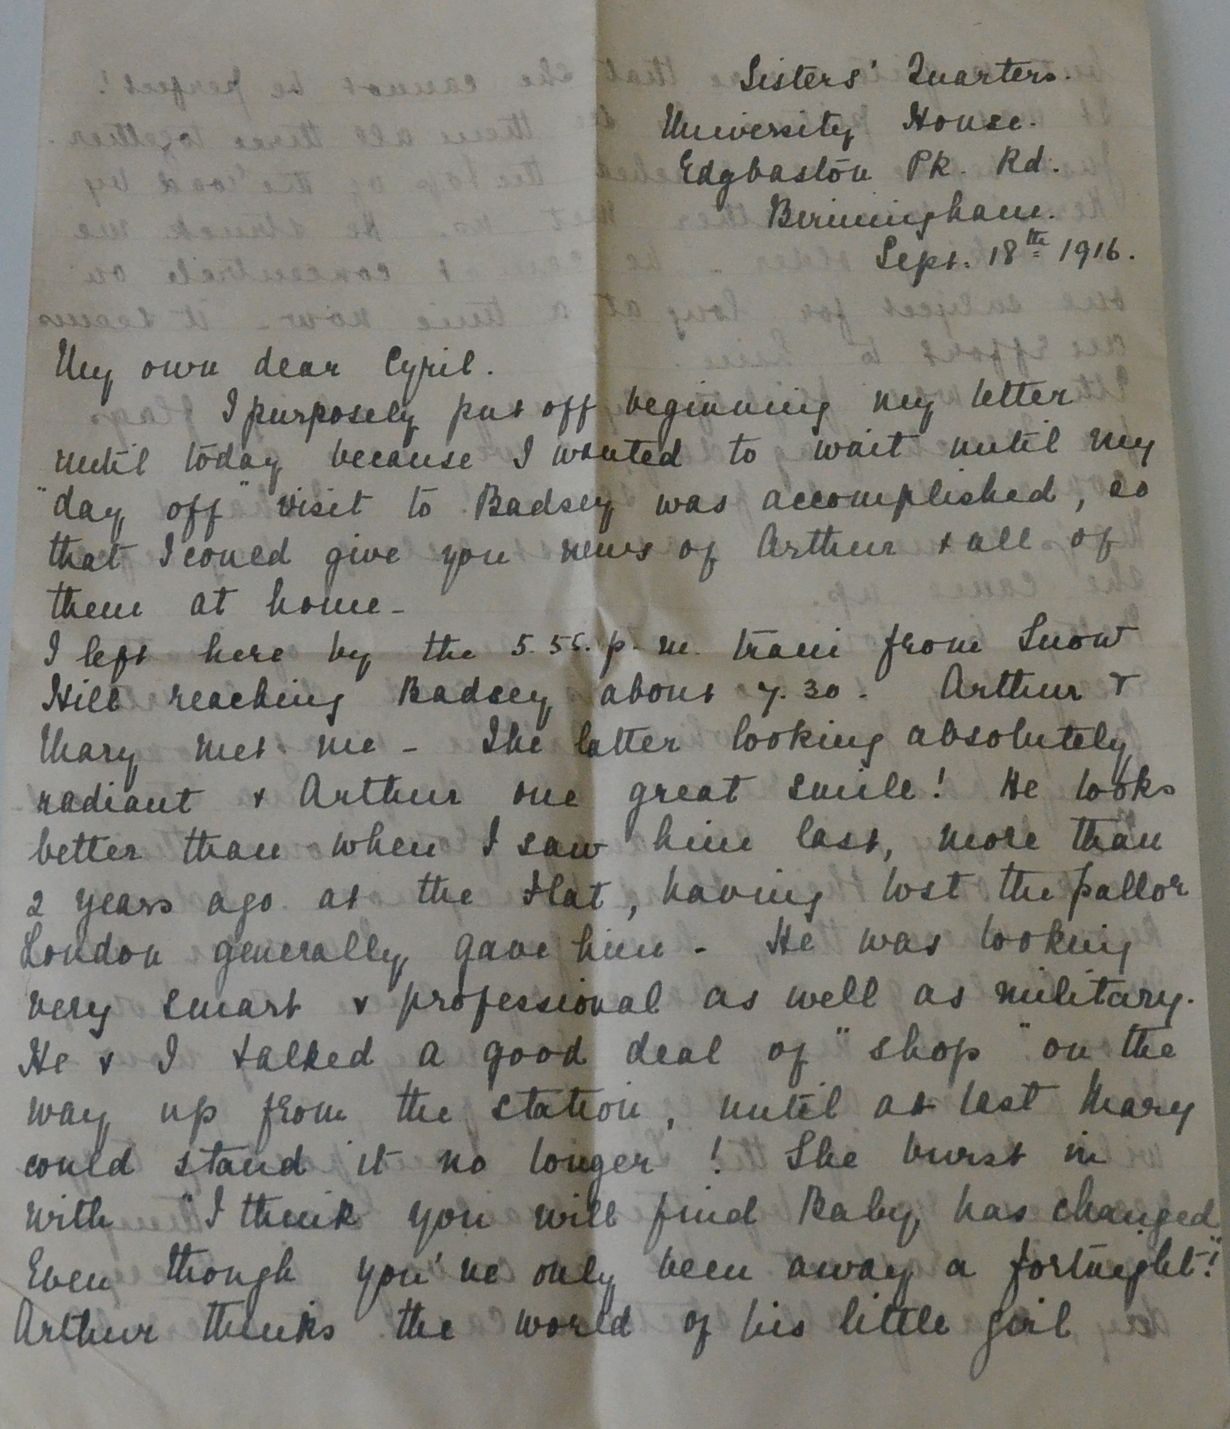 Sisters' Quarters.
University House.
Edgbaston Pk. Rd.
Birmingham.
Sept. 18th 1916.
My own dear Cyril.
I purposely put off beginning my letter
until today because I wanted to wait until my
"day off" visit to Badsey was accomplished, so
that I could give you news of Arthur & all of
them at home -
I left here by the 5.55. p.m. train from Snow
Hill reaching Badsey about 7.30. Arthur &
Mary met me - The latter looking absolutely
radiant & Arthur one great smile! He looks
better than when I saw him last, more than
2 years ago at the flat, having lost the pallor
London generally gave him - He was looking
very smart & professional as well as military.
He & I talked a good deal of "shop" on the
way up from the station, until at last Mary
could stand it no longer! She burst in
with "I think you will find Baby has changed
Even though you've only been away a fortnight!"
Arthur thinks the world of his little girl